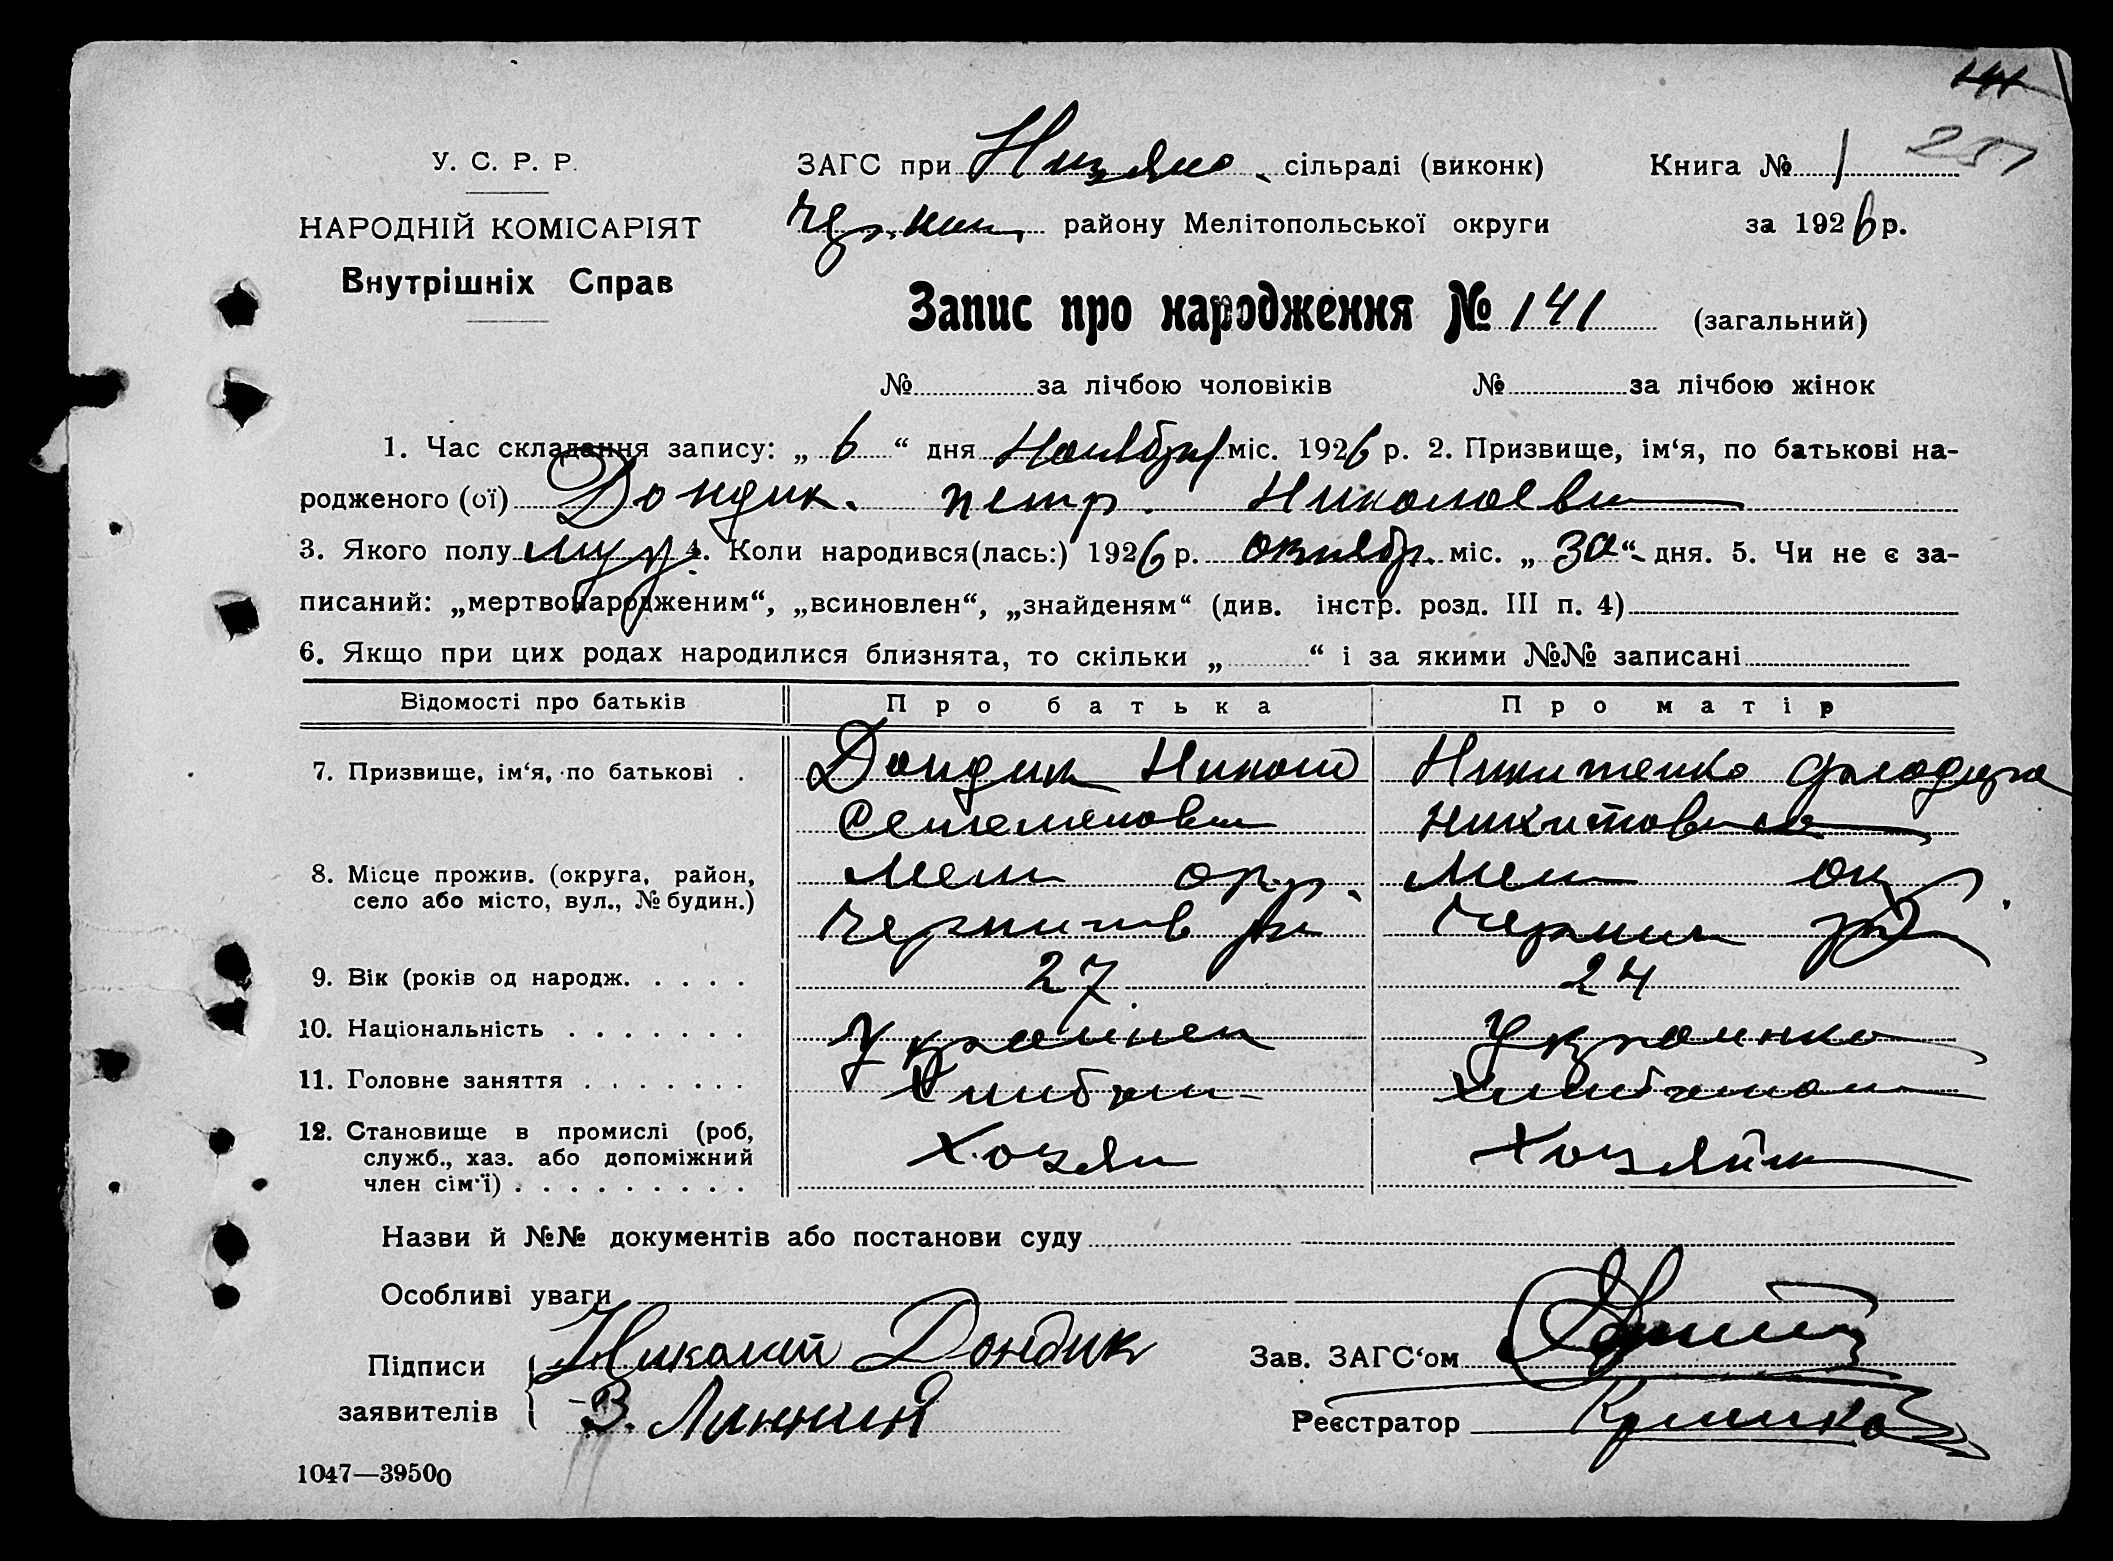 141
У. С. Р. Р. ЗАГС при сільраді (виконк) Книга № 1
НАРОДНІЙ КОМІСАРІЯТ району Мелітопольської округи за 1926 р.
Внутрішніх Справ
Запис про народження № 141 (загальний)
№ за лічбою чоловіків № за лічбою жінок
1. Час складання запису: „ 6 “ дня Ноября міс. 1926 р. 2. Призвище, ім‘я, по батькові на-
родженого (ої) Дондик. Петр. Николаеви
3. Якого полу муж 4. Коли народився(лась:) 1926 р. октябр. міс. „ 30 “ дня. 5. Чи не є за-
писаний: „мертвонародженим“, „всиновлен“, „знайденям“ (див. інстр. розд. III п. 4)
6. Якщо при цих родах народилися близнята, то скільки „ “ і за якими №№ записані
Відомості про батьків Про батька Про матір
7. Призвище, ім‘я, по батькові . Дондик Никол Никитенко
Никитовна
8. Місце прожив. (округа, район, Мел окр. Мел ок
село або місто, вул., № будин.) Черниг
9. Вік (років од народж. . . . . 27 24
10. Національність . . . . . . . Украинец Украинка
11. Головне заняття . . . . . . .
12. Становище в промислі (роб, Хозяин Хозяйк
служб., хаз. або допоміжний
член сім‘ї) . . . . . . . . .
Назви й №№ документів або постанови суду
Особливі уваги
Підписи Николай Дондик Зав. ЗАГС‘ом
заявителів З. Линник Реєстратор
1047—39500